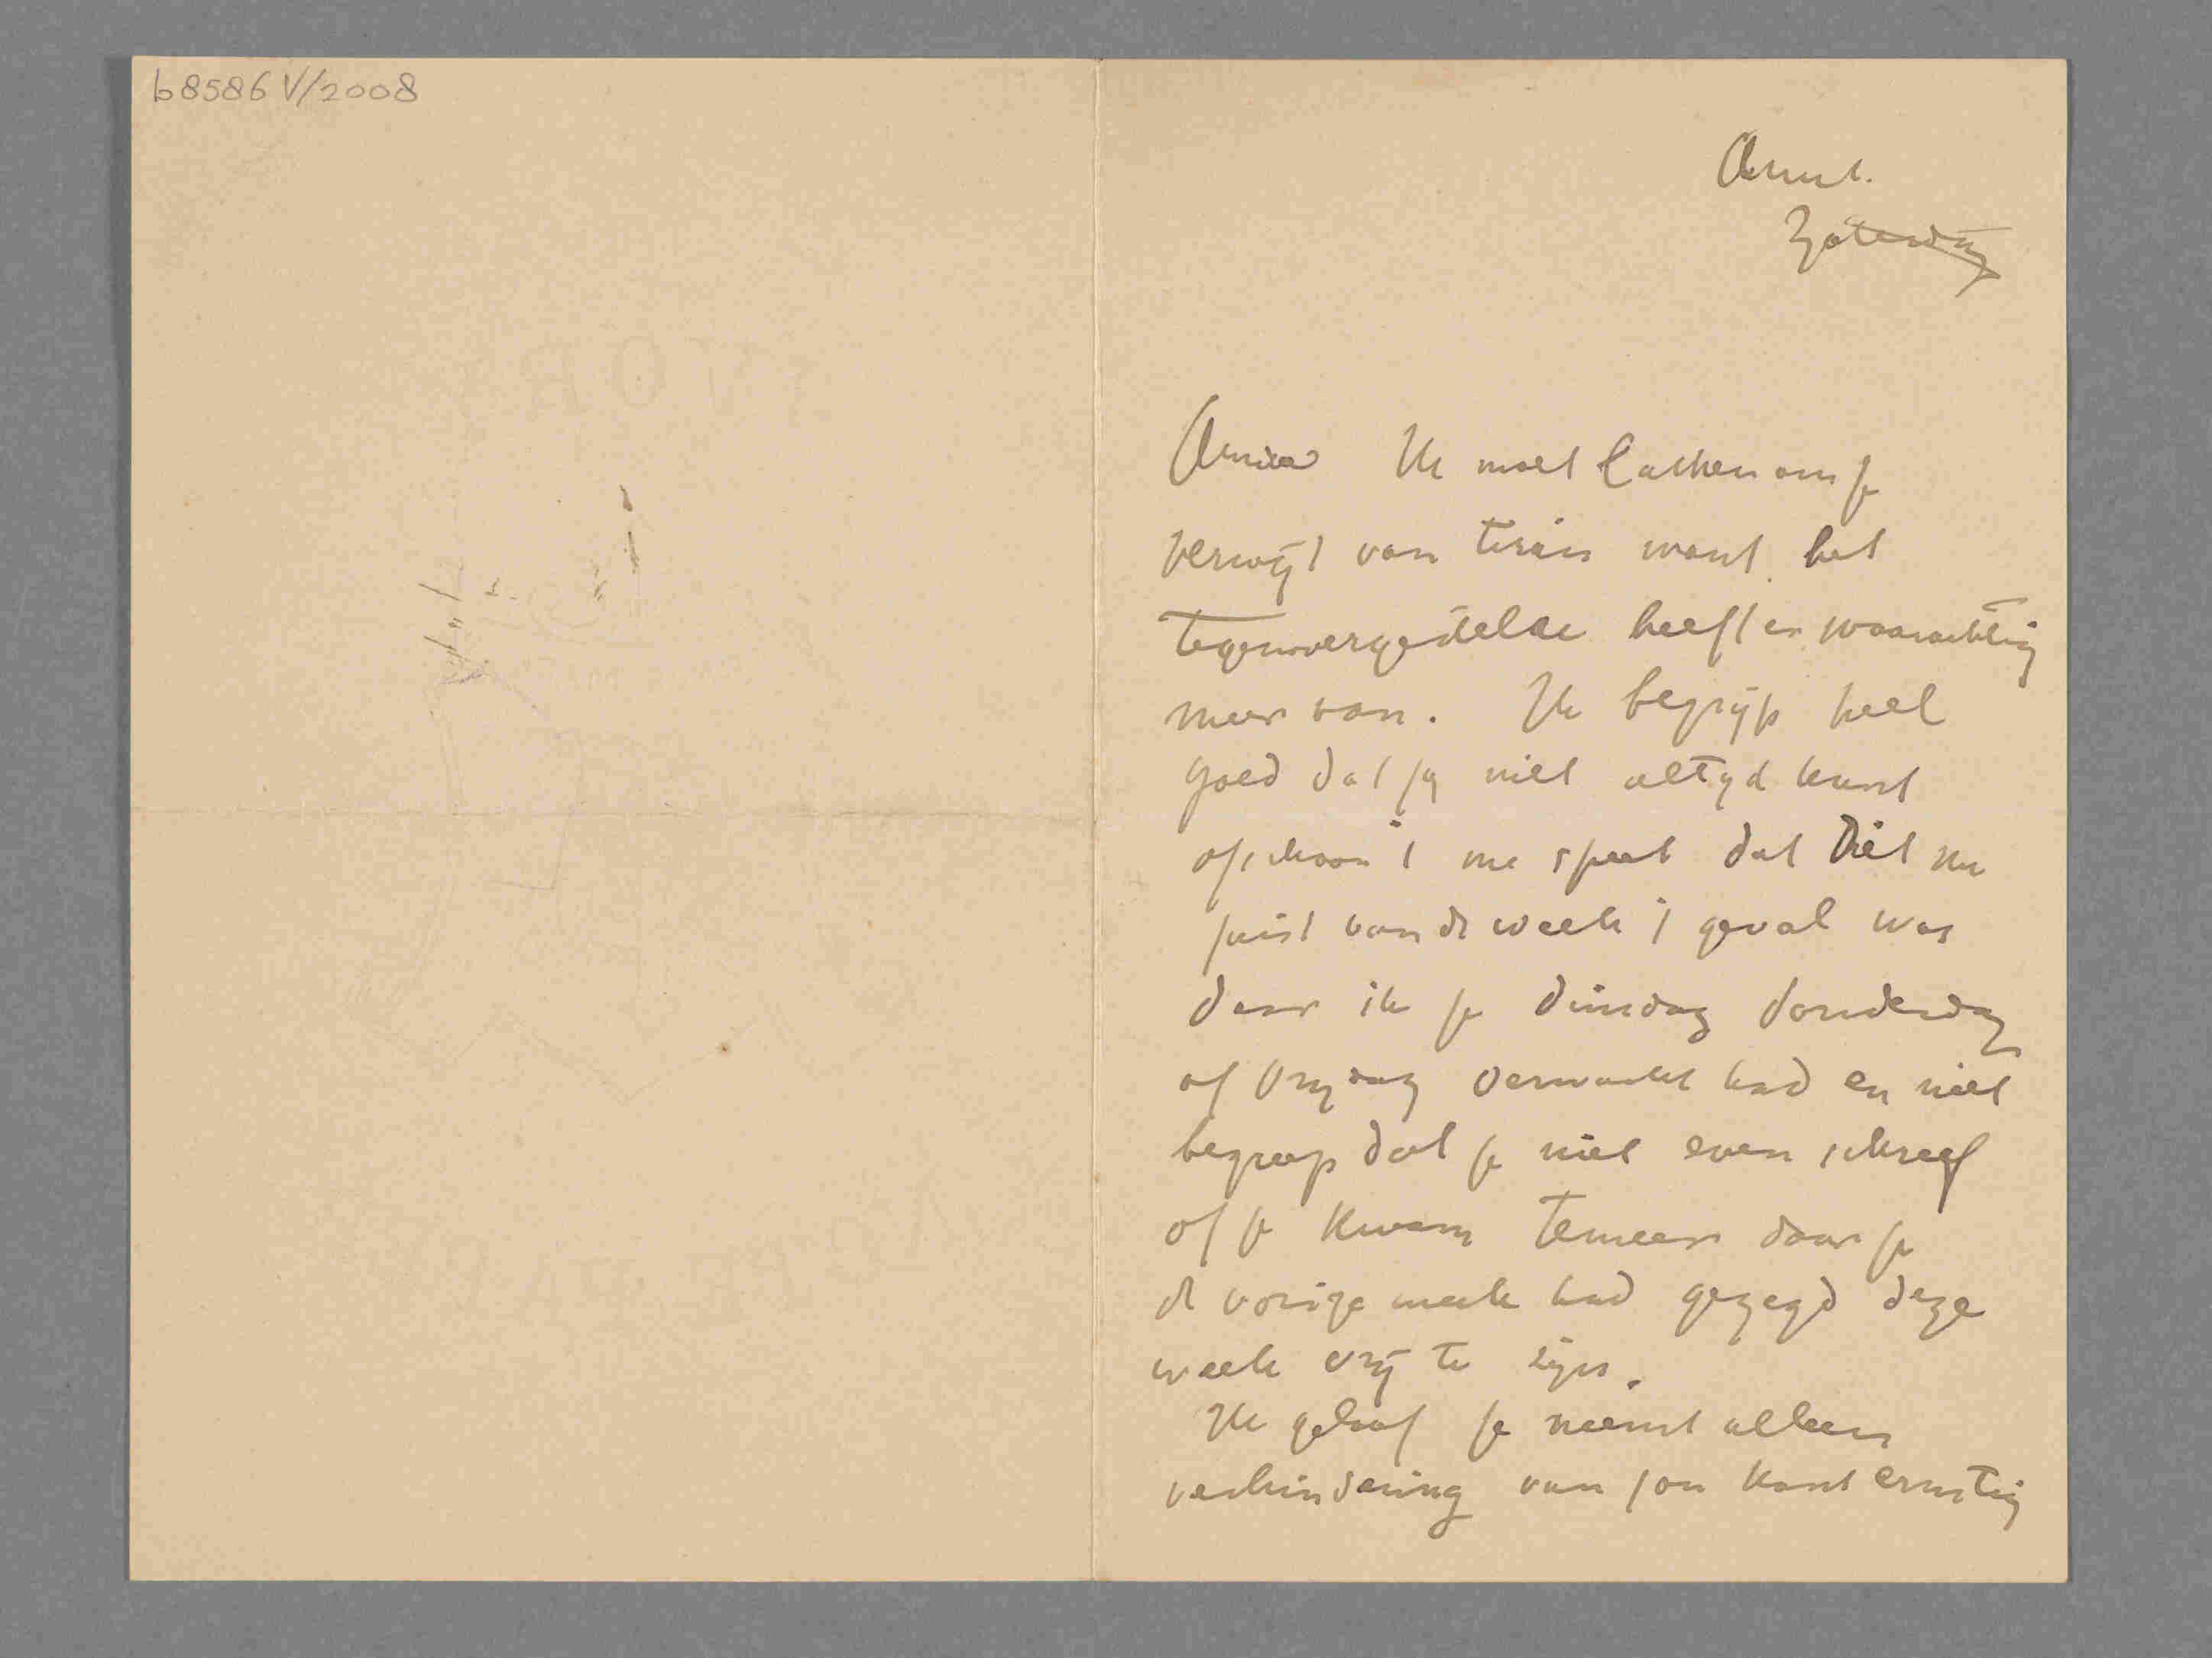 b8586 V/2008
Amst.
Zaterdag
Amice Ik moet lachen om je
verwijt van want het
tegenovergestelde heeft er waarachtig
meer van. Ik begrijp heel
goed dat jij niet altijd kunt
ofschoon 't me speet dat dit nu
juist van de week 't geval was
daar ik je dinsdag donderdag
of Vrijdag verwacht had en niet
begreep dat je niet even schreef
of je kwam temeer daar je
de vorige week had gezegd deze
week vrij te zijn.
Ik geloof je neemt alleen
verhindering van jou kant ernstig